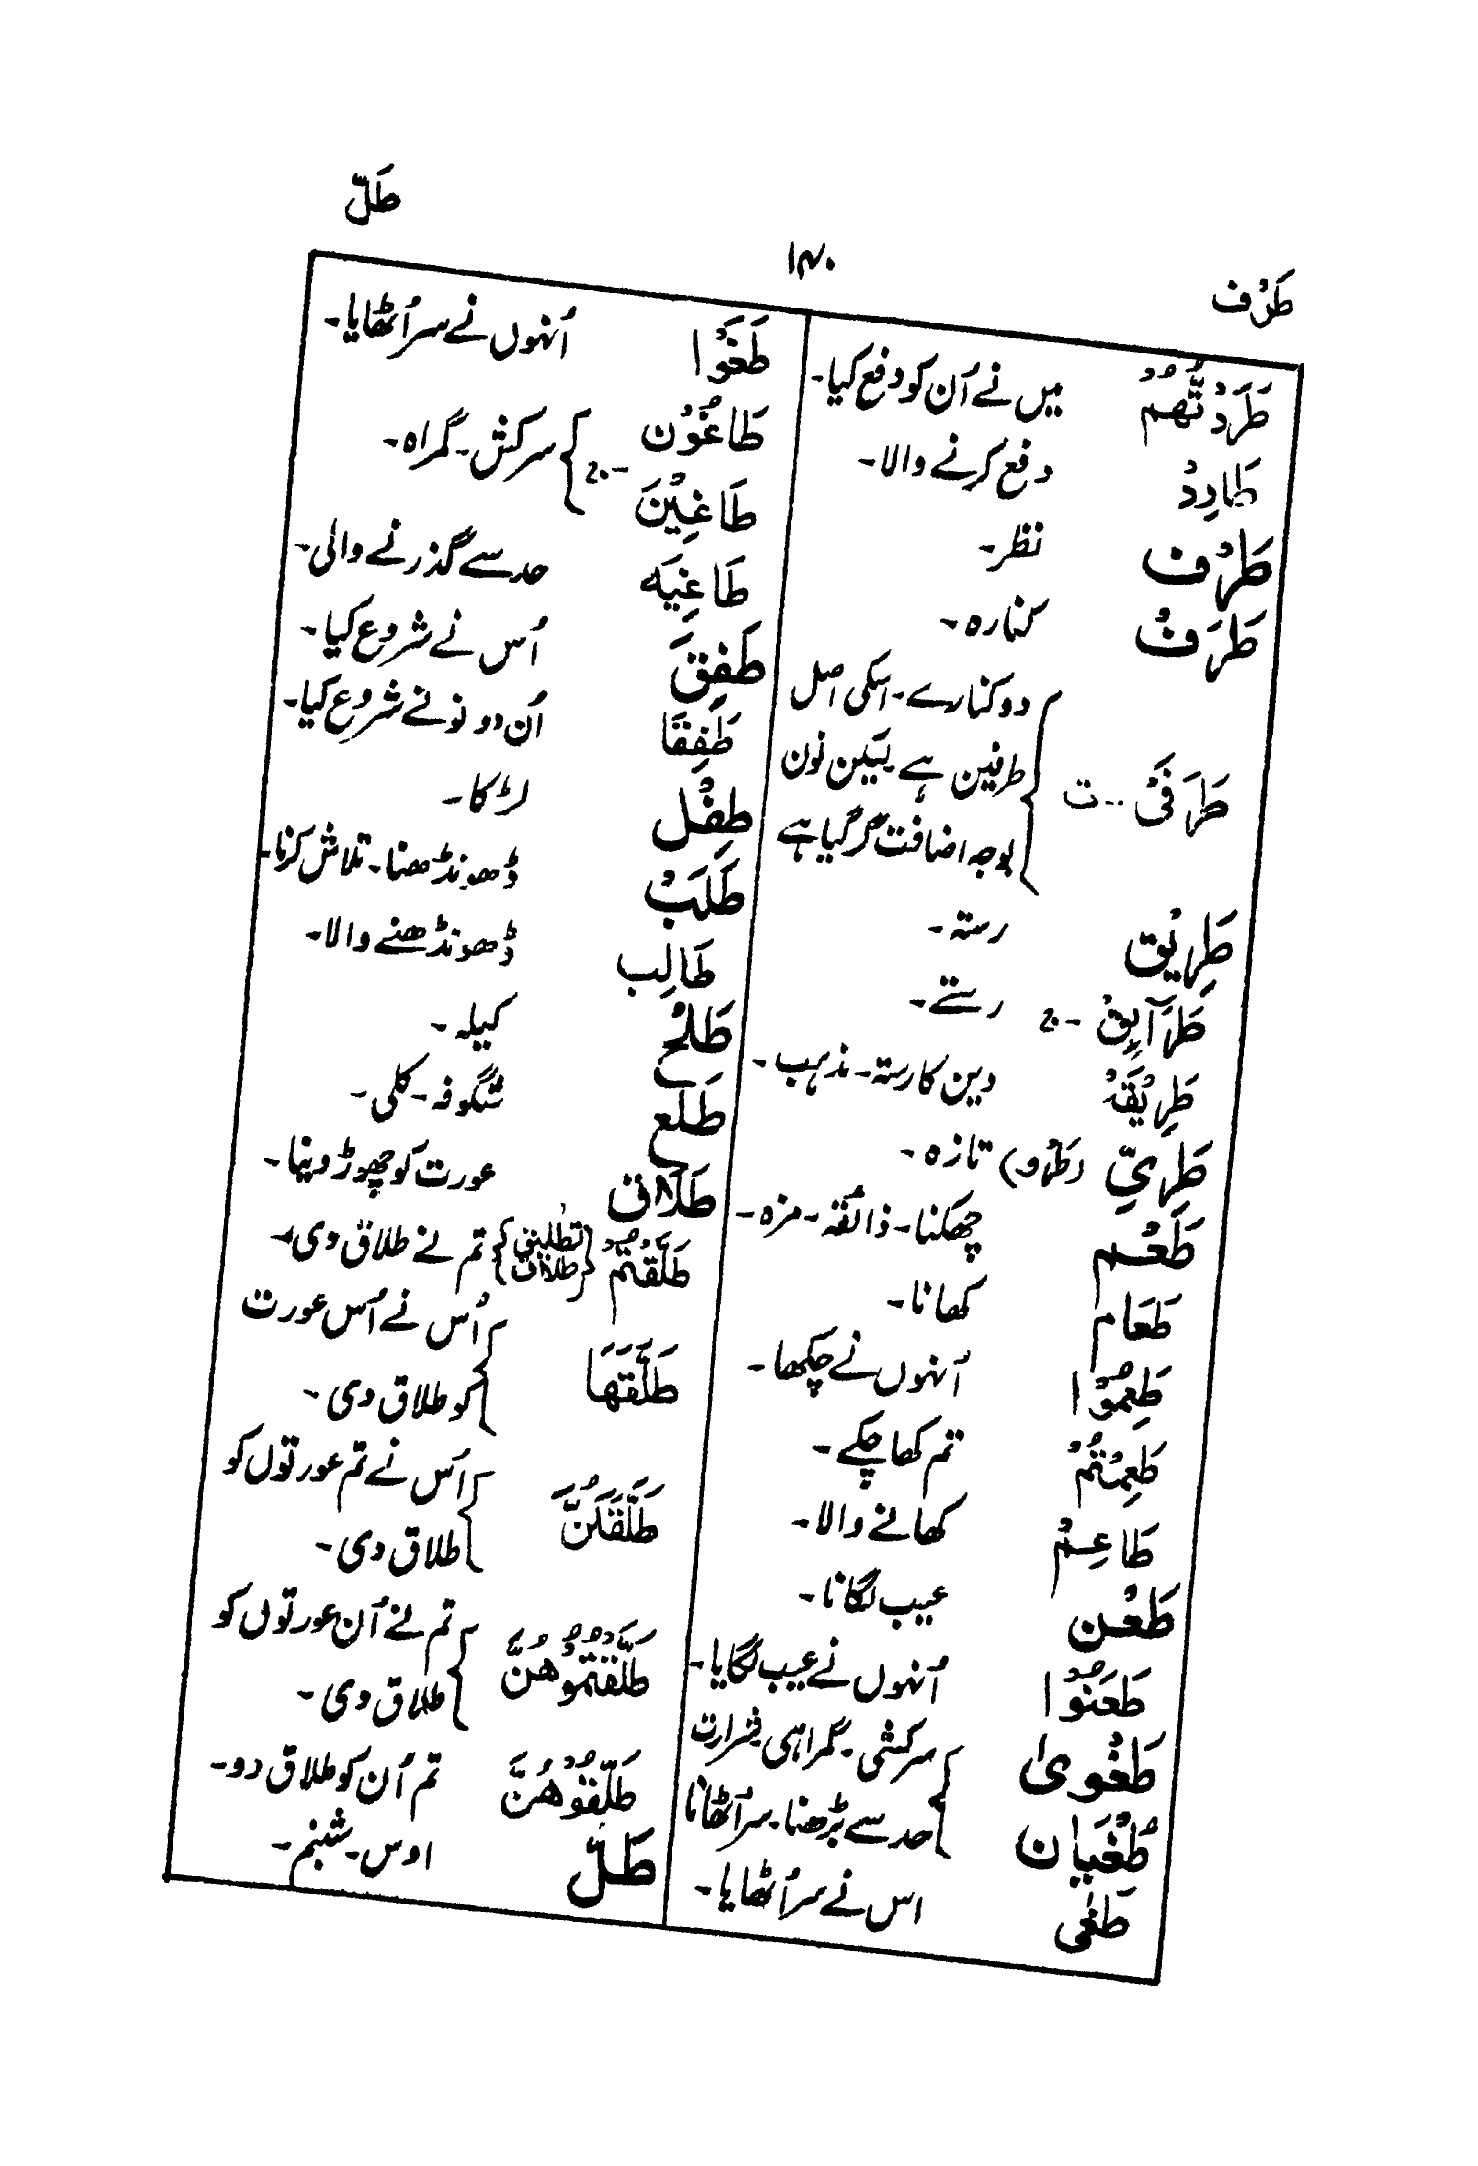 طَرْف
۱۴۰
طَلّ
طَرَدْتُّهُمْ میں نے اُن کو دفع کیا۔
طَارِدٌ دفع کرنے والا۔
طَرْف نظر۔
طَرَفٌ کنارہ۔
طَرَفَیْ ۔۔ت دو کنارے۔ اسکی اصل
طرفین ہے لیکن نون
بوجہ اضافت گر گیا ہے
طَرِیْق رستہ۔
طَرَآئِقُ ۔ج رستے۔
طَرِیْقَۃٌ دین کا رستہ۔ مذہب۔
طَرِیّ (طرو) تازہ۔
طَعْم چھکنا۔ ذائقہ۔ مزہ۔
طَعَام کھانا۔
طَعِمُوْا اُنہوں نے چکھا۔
طَعِمْتُمْ تم کھا چکے۔
طَاعِمٌ کھانے والا۔
طَعْن عیب لگانا۔
طَعَنُوْا اُنہوں نے عیب لگایا۔
طَغْویٰ سرکشی۔ گمراہی شرارت
طُغْیَان حد سے بڑھنا۔ سر اُٹھانا
طَغٰی اس نے سر اُٹھایا۔
طَغَوْا اُنہوں نے سر اُٹھایا۔
طَاغُوْن
۔ج سرکش۔ گمراہ۔
طَاغِیْنَ
طَاغِیَہ حد سے گذرنے والی۔
طَفِقَ اُس نے شروع کیا۔
طَفِقَا اُن دو نو نے شروع کیا۔
طِفْل لڑکا۔
طَلَبٌ ڈھونڈھنا۔ تلاش کرنا۔
طَالِب ڈھونڈھنے والا۔
طَلْح کیلہ۔
طَلْع شگوفہ۔ کلی۔
طَلَاق عورت کو چھوڑ دینا۔
طَلَّقْتُمْ طلاق تم نے طلاق دی۔
طَلَّقَھَا اُس نے اُس عورت
کو طلاق دی۔
طَلَّقَکُنَّ اُس نے تم عورتوں کو
طلاق دی۔
طَلَّقْتُمُوْھُنَّ تم نے اُن عورتوں کو
طلاق دی۔
طَلِّقُوْھُنَّ تم اُن کو طلاق دو۔
طَلّ اوس۔ شبنم۔